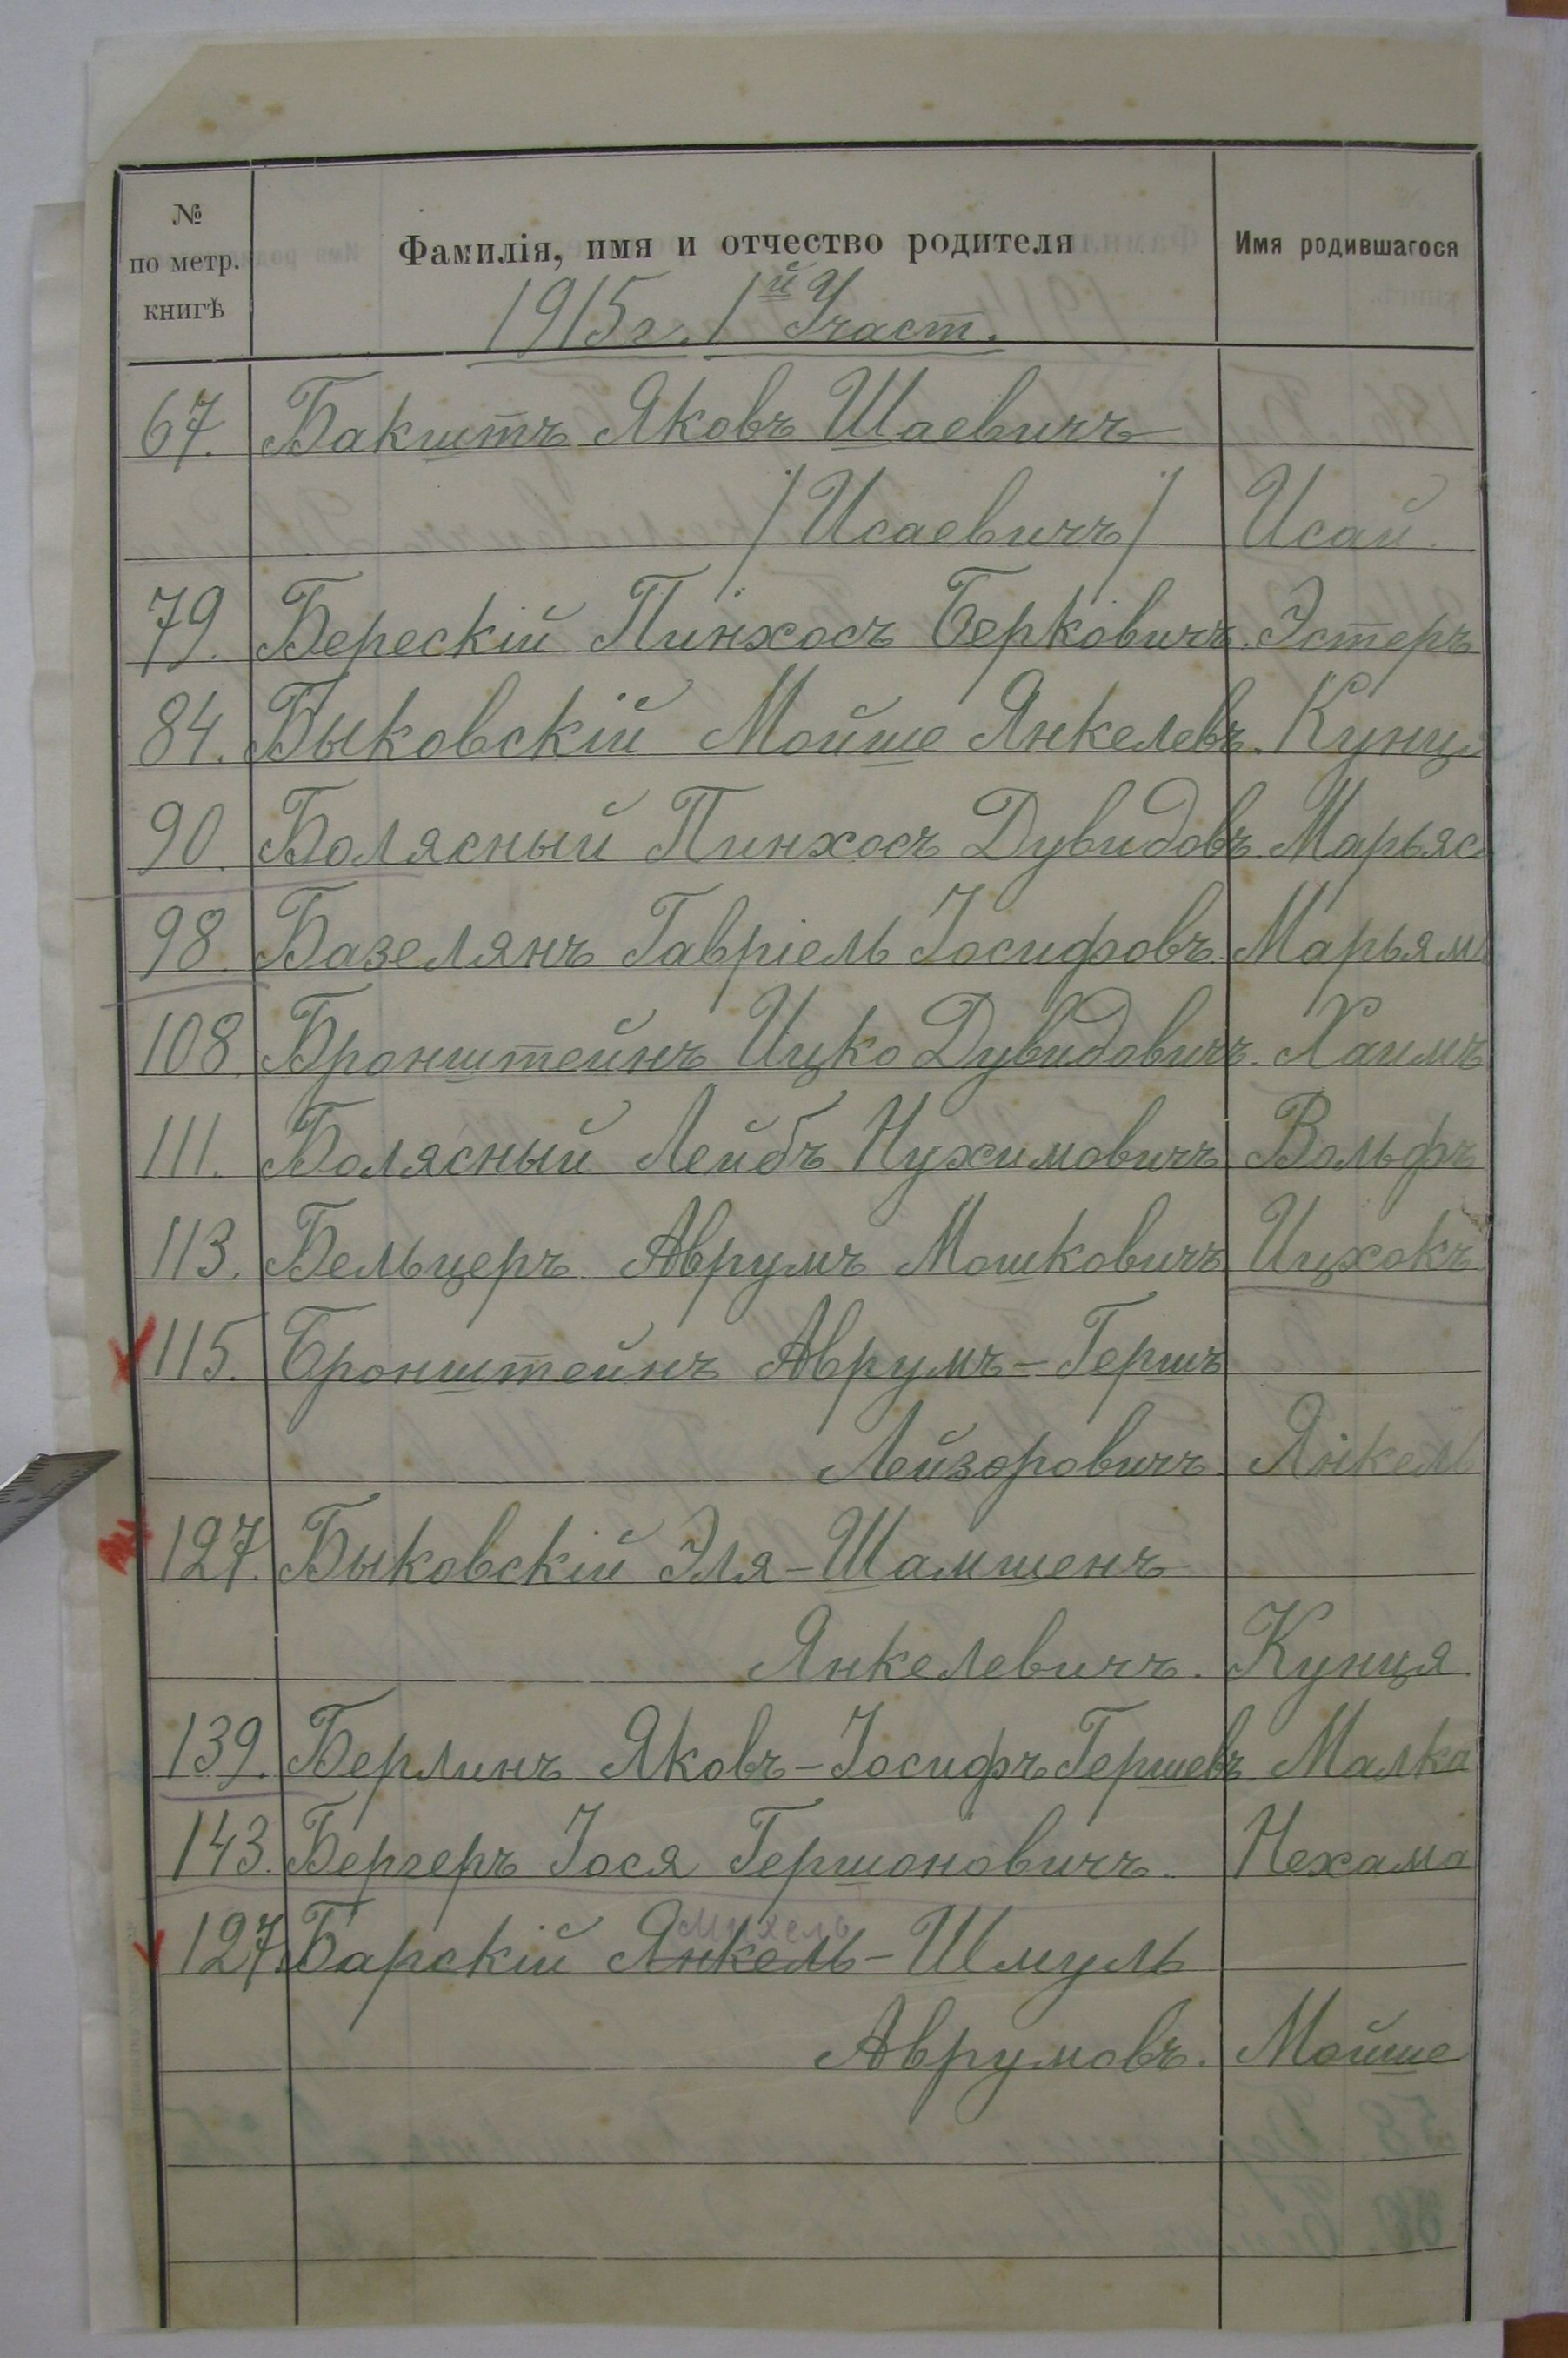 № по метр. книгѣ Фамилія, имя и отчество родителя Имя родившагося
1915 г. 1й Участ.
67. Бакштъ Яковъ Шаевичъ
/Исаевичъ/ Исай
79. Берескій Пинхосъ Берковичъ. Эстеръ
84. Быковскій Мойше Янкелевъ. Кунця
90. Болясный Пинхосъ Дувидовъ. Марьяс
98. Базелянъ Гавріель Іосифовъ. Марьямъ
108. Бронштейнъ Ицко Дувидовичъ. Хаимъ
111. Болясный Лейбъ Нухимовичъ Вольфъ
113. Бельцеръ Аврумъ Мошковичъ Ицхокъ
115. Бронштейнъ Аврумъ-Гершъ
Лейзоровичъ. Янкель
127. Быковскій Эля-Шамшенъ
Янкелевичъ. Кунця.
139. Берлинъ Яковъ-Іосифъ Гершевъ. Малка
143. Бергеръ Іося Гершоновичъ. Нехама
михель
127. Барскій Янкель-Шмуль
Аврумовъ. Мойше